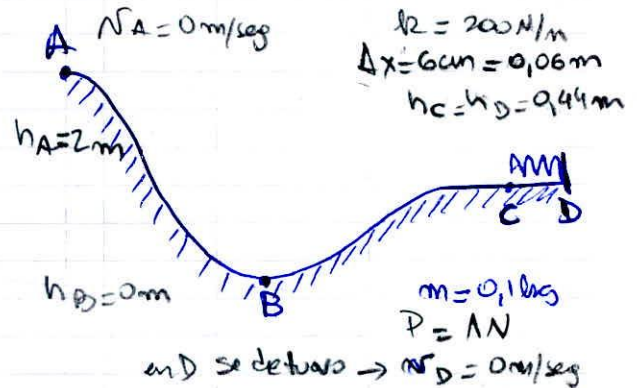 A
v_A = 0 m/seg
k = 200 N/m
Δx = 6cm = 0,06m
h_C = h_D = 0,44m
h_A = 2m
C D
h_B = 0m
B
m = 0,1kg
P = 1N
en D se detuvo → v_D = 0m/seg